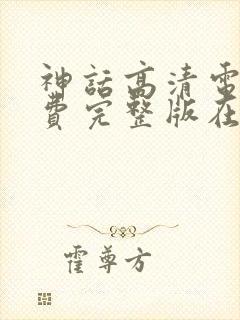 神話高清電
費完整版在
霍尊方